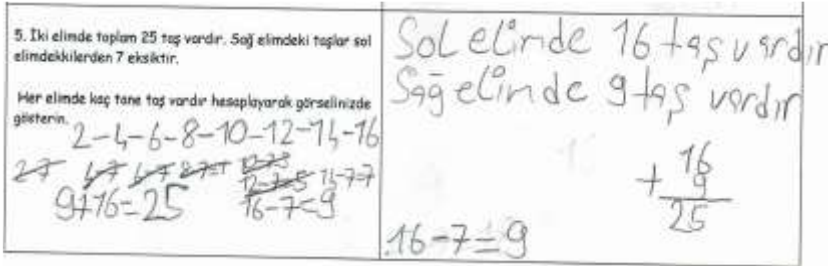 5. İki elimde toplam 25 taş vardır. Sağ elimdeki taşlar sol
elimdekkilerden 7 eksiktir.
Her elimde kaç tane taş vardır hesaplayarak görselinizde
gösterin.
2-4-6-8-10-12-14-16
2-7 4-7 6-7 8-7=1
12-7=5 14-7=7
9+16=25 16-7=9
Sol elimde 16 taş vardır
Sağ elimde 9 taş vardır
16
+ 9
25
16-7=9